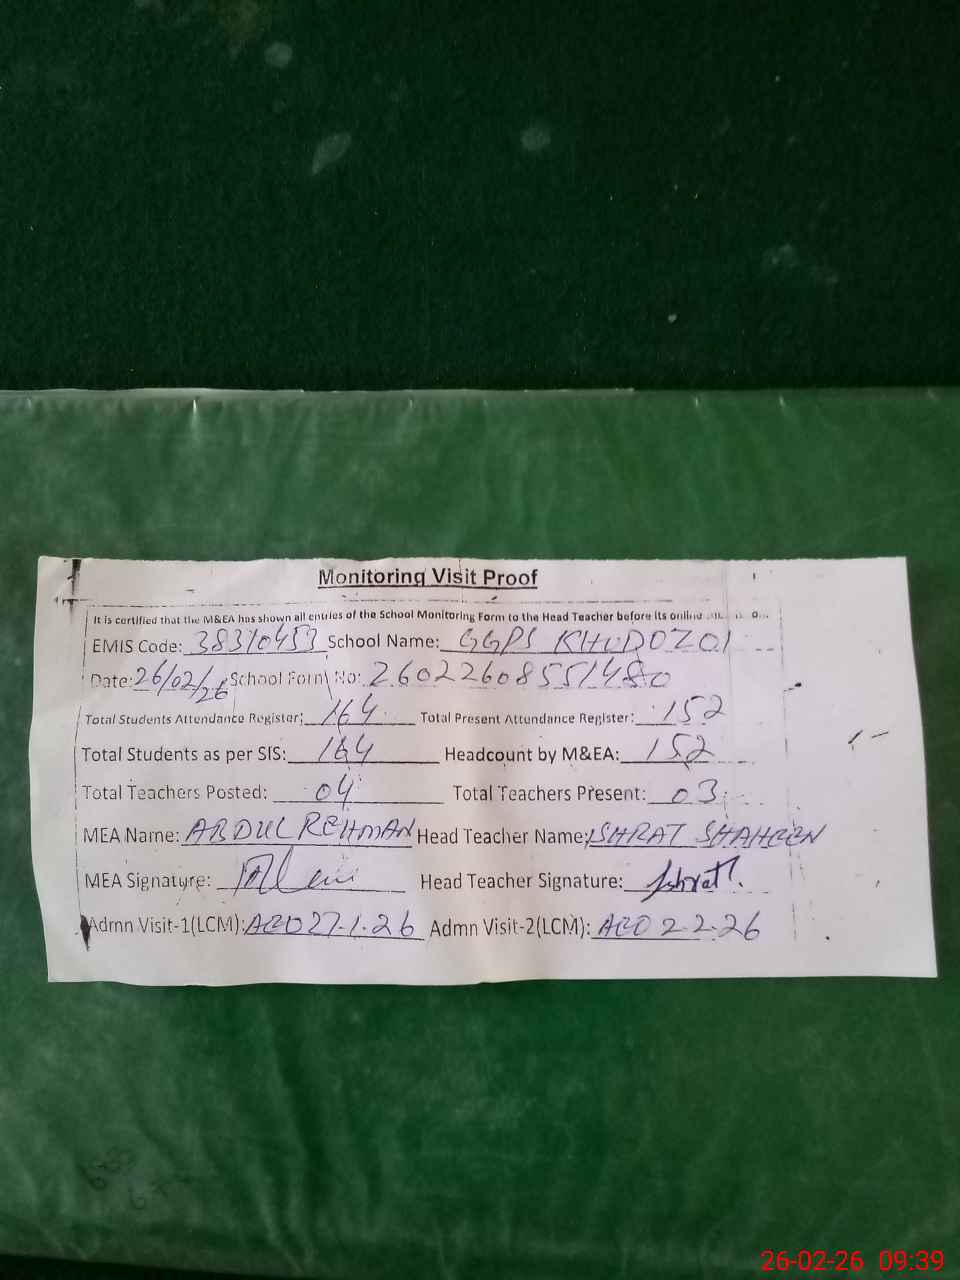 Monitoring Visit Proof
It is certified that the M&EA has shown all entries of the School Monitoring Form to the Head Teacher before its online
EMIS Code: 38310453 School Name: GGPS KHUDOZOI
Date: 26/02/26 School Form No: 26022608551480
Total Students Attendance Register: 164 Total Present Attendance Register: 152
Total Students as per SIS: 164 Headcount by M&EA: 152
Total Teachers Posted: 04 Total Teachers Present: 03
MEA Name: ABDUL REHMAN Head Teacher Name: ISHRAT SHAHEEN
MEA Signature: Head Teacher Signature: Ishrat
Admn Visit-1(LCM): AEO 27.1.26 Admn Visit-2(LCM): AEO 2.2.26
26-02-26 09:39